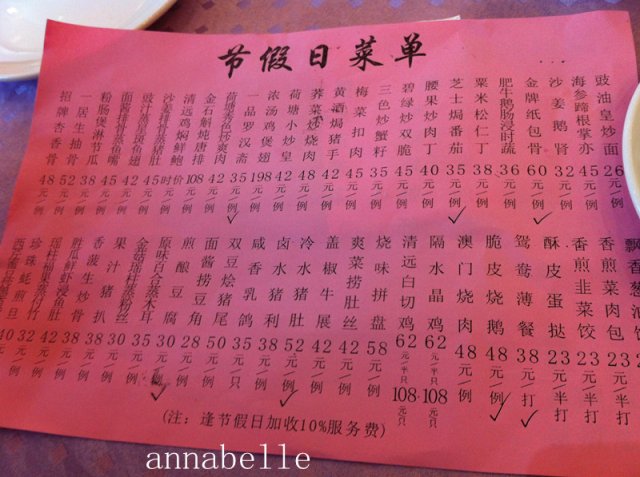 节假日菜单
招牌杏香骨 48元/例
一居生抽骨 52元/例
粉肠煲淋节瓜 38元/例
面酱排骨蒸鱼嘴 45元/例
豉汁蒸 猪肚 42元/例
沙姜排骨蒸 45元/例
清远鸡焖鲜鲍 时价
金石斛炖唐排 108元/例
荷塘秀色炒爽肉 42元/例
一品罗汉斋 35元/例
浓汤鸡煲翅 198元/例
荷塘小炒皇 42元/例
荠菜炒烧肉 48元/例
黄酒焗猪手 42元/例
梅菜扣肉 45元/例
三色炒蟹籽 35元/例
碧绿炒双脆 45元/例
腰果炒肉丁 40元/例
芝士焗番茄 35元/例
粟米松仁丁 38元/例
肥牛鹅肠浸时蔬 36元/例
金牌纸包骨 60元/例
沙姜鹅肾 32元/例
海参蹄根掌亦 45元/例
豉油皇炒面 26元/例
40元/例
珍珠蚝煎 32元/例
瑶柱 蒸 竹 42元/例
胜瓜鲜虾浸鱼 38元/例
香菠生炒骨 38元/例
果汁猪扒 30元/例
金菇瑶柱蒸粉丝 35元/例
原味百合蒸木耳 30元/例
煎酿豆腐 28元/例
面酱捞豆角 28元/例
双豆烩猪尾 50元/例
咸香乳鸽 35元/只
卤水猪利 38元/例
冷水猪肚 52元/例
盖椒牛展 42元/例
爽菜捞肚丝 42元/例
烧味拼盘 58元/例
清远白切鸡 62元/半只 108元/只
隔水晶鸡 62元/半只 108元/只
澳门烧肉 48元/例
脆皮烧鹅 48元/例
鸳鸯薄餐 38元/打
酥皮蛋挞 23元/半打
香煎韭菜饺 23元/半打
香煎菜肉包 23元/半打
(注：逢节假日加收10%服务费)
annabelle